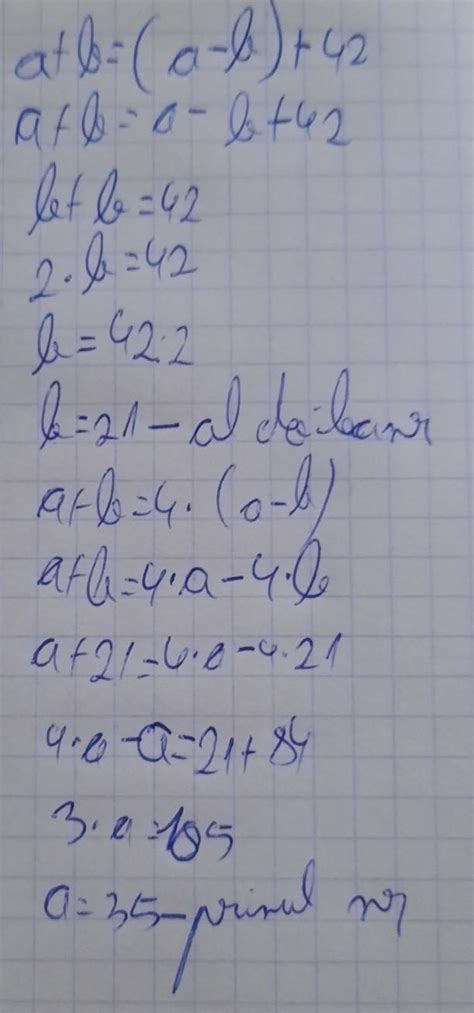 a+b=(a-b)+42
a+b=a-b+42
b+b=42
2·b=42
b=42:2
b=21-al doilea nr
a+b=4·(a-b)
a+b=4·a-4·b
a+21=4·a-4·21
4·a-a=21+84
3·a=105
a=35-primul nr